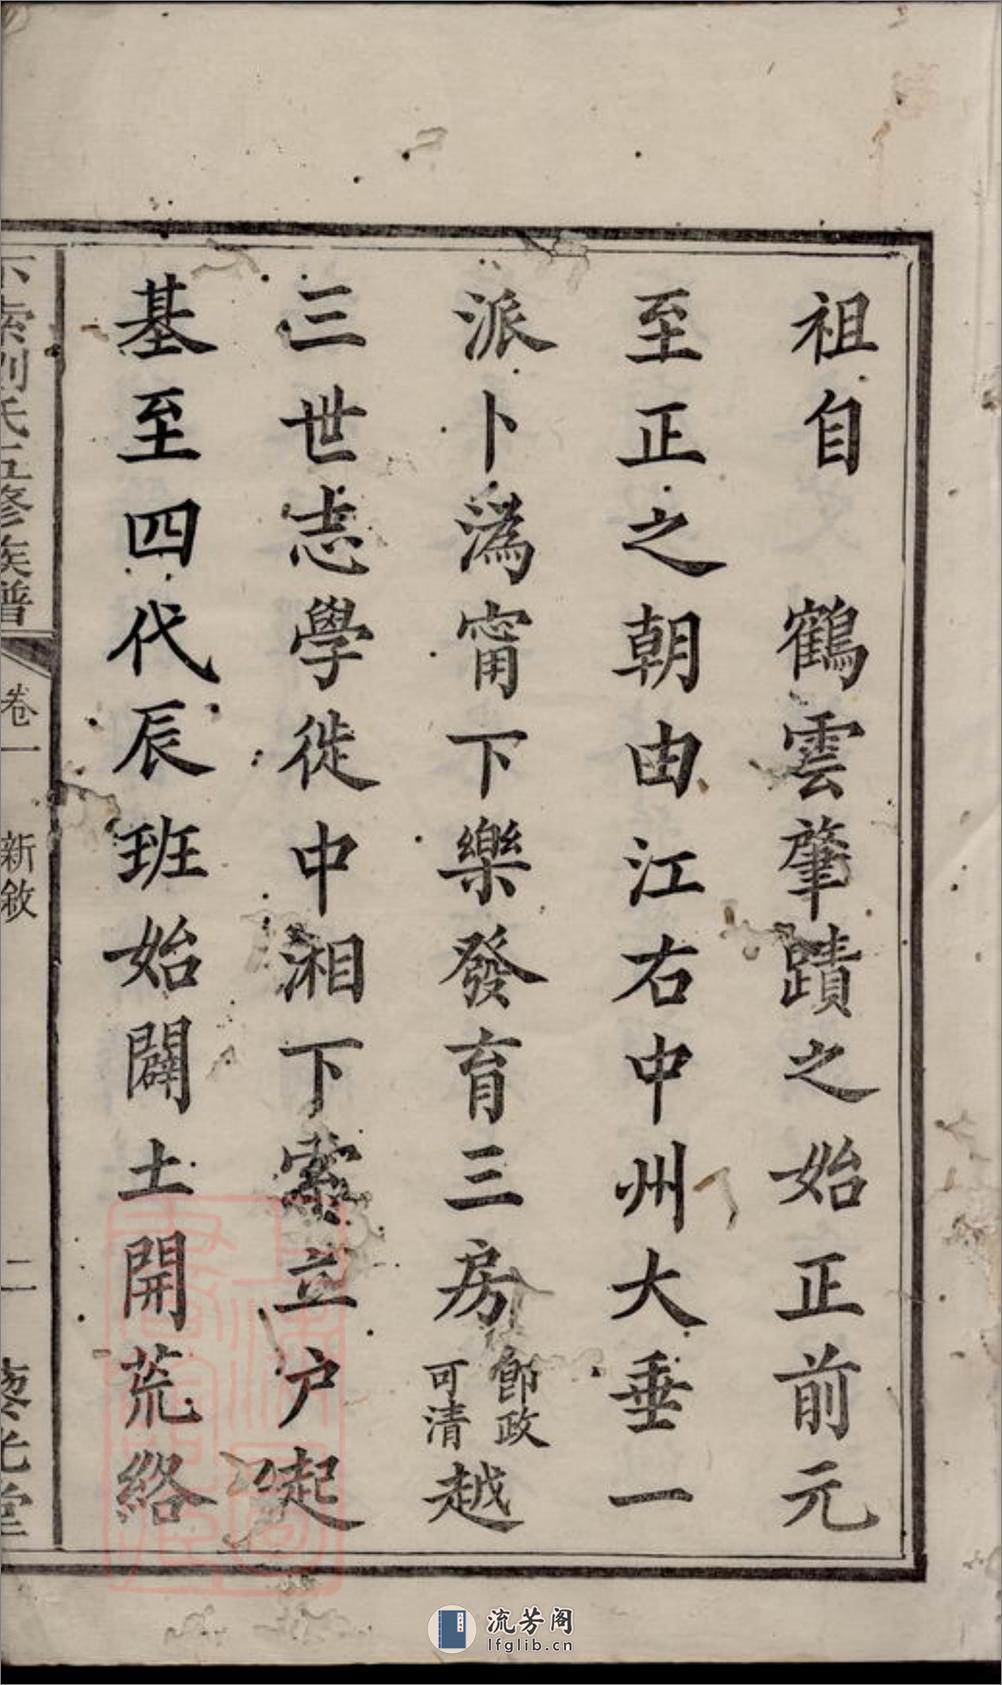 祖自　鶴雲肇蹟之始正前元
至正之朝由江右中州大垂一
派卜潙甯下樂發育三房節政可清越
三世志學徙中湘下索立户起
基至四代辰班始闢土開荒絡
下索劉氏五修族譜
卷一
新敘
二
流芳阁
lfglib.cn